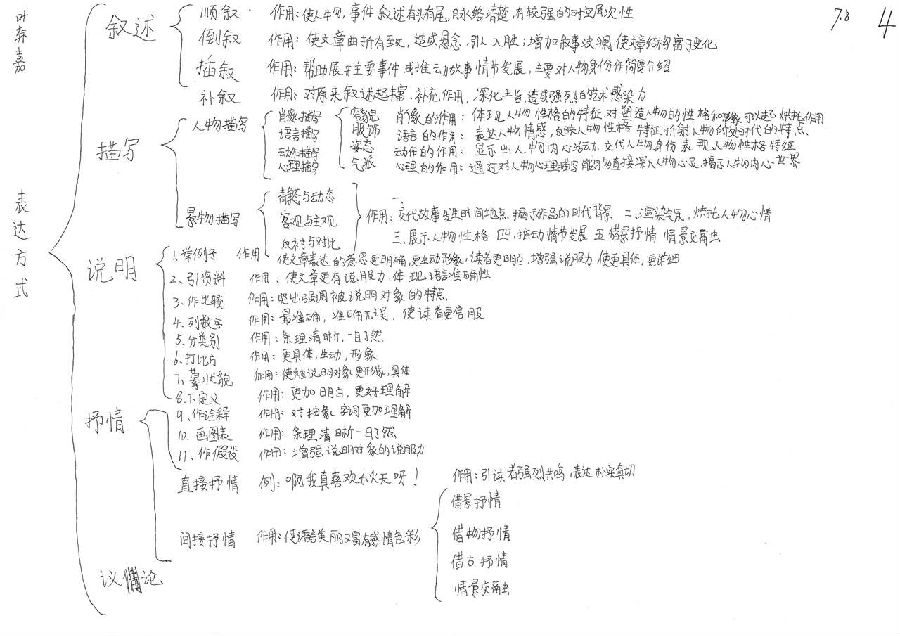 7.8 4
叶森嘉
表达方式
叙述
顺叙 作用：使人物，事件叙述有头有尾，脉络清楚，有较强的时空层次性
倒叙 作用：使文章曲折有致，造成悬念，引人入胜；增加叙事波澜，使文章结构富于变化
插叙 作用：帮助展开主要事件或推动故事情节发展，主要对人物身份作简要介绍
补叙 作用：对原来叙述起丰富、补充作用，深化主旨，造成强烈的艺术感染力
描写
人物描写
肖像描写 容貌 肖像的作用：体现人物性格的特征 对塑造人物的性格和形象可以起
语言描写 服饰 语言的作用：表达人物情感，反映人物性格特征
动作描写 姿态 动作的作用：显示出人物内心活动，交代人物身份表现人物性格特征
心理描写 气质 心理的作用：通过对人物心理描写能够直接深入人物心灵，揭示人物内心世界
景物描写
静态与动态
客观与主观
反衬与对比
作用：一、交代故事发生时间地点，揭示作品的时代背景 二、渲染气氛，烘托人物心情
三、展示人物性格 四、推动情节发展 五、借景抒情 情景交融
说明
1、举例子 作用：使文章表达的意思更明确，更生动形象，读者更明白，增强说服力，使更具体，更详细
2、引资料 作用：使文章更有说服力，体现语言准确性
3、作比较 作用：突出强调被说明对象的特点
4、列数字 作用：最准确，准确无误，使读者更信服
5、分类别 作用：条理清晰，一目了然
6、打比方 作用：更具体，生动，形象
7、摹状貌 作用：使被说明对象更形象，具体
8、下定义 作用：更加明白，更好理解
9、作诠释 作用：对抽象，字词更加理解
10、画图表 作用：条理清晰一目了然
11、作假设 作用：增强说明对象的说服力
抒情
直接抒情 例：啊我真喜欢大冬天呀！ 作用：引读者强烈共鸣，表达朴实真切
间接抒情 作用：使语言美丽又富有感情色彩
借景抒情
借物抒情
借古抒情
情景交融
议论